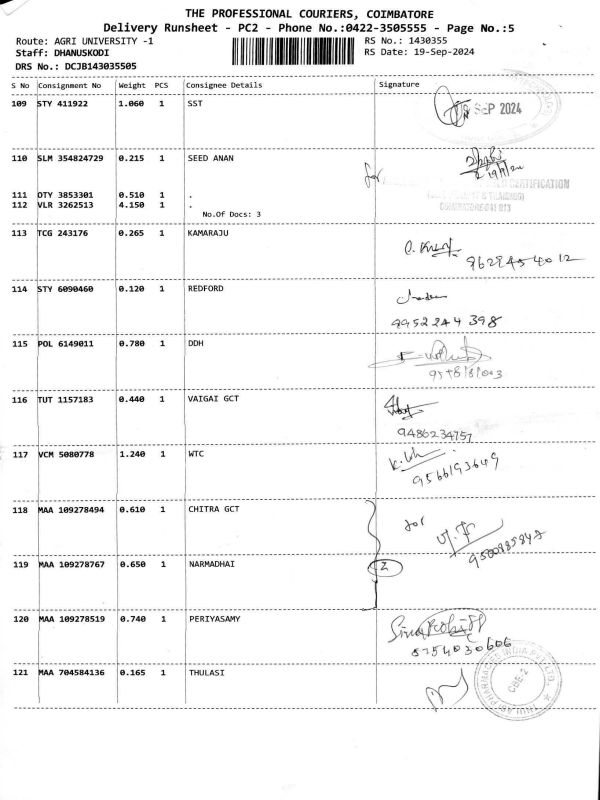 THE PROFESSIONAL COURIERS, COIMBATORE
Delivery Runsheet - PC2 - Phone No.:0422-3505555 - Page No.:5
Route: AGRI UNIVERSITY -1
RS No.: 1430355
Staff: DHANUSKODI
RS Date: 19-Sep-2024
DRS No.: DCJB143035505
S No Consignment No Weight PCS Consignee Details Signature
109 STY 411922 1.060 1 SST
SEP 2024
110 SLM 354824729 0.215 1 SEED ANAN
for
CERTIFICATION
111 OTY 3853301 0.510 1 .
112 VLR 3262513 4.150 1 .
No.Of Docs: 3
113 TCG 243176 0.265 1 KAMARAJU
9629454012
114 STY 6090460 0.120 1 REDFORD
9952244398
115 POL 6149011 0.780 1 DDH
116 TUT 1157183 0.440 1 VAIGAI GCT
9486234757
117 VCM 5080778 1.240 1 WTC
9566193649
118 MAA 109278494 0.610 1 CHITRA GCT
for
119 MAA 109278767 0.650 1 NARMADHAI
2
120 MAA 109278519 0.740 1 PERIYASAMY
8754030606
121 MAA 704584136 0.165 1 THULASI
CBE-2